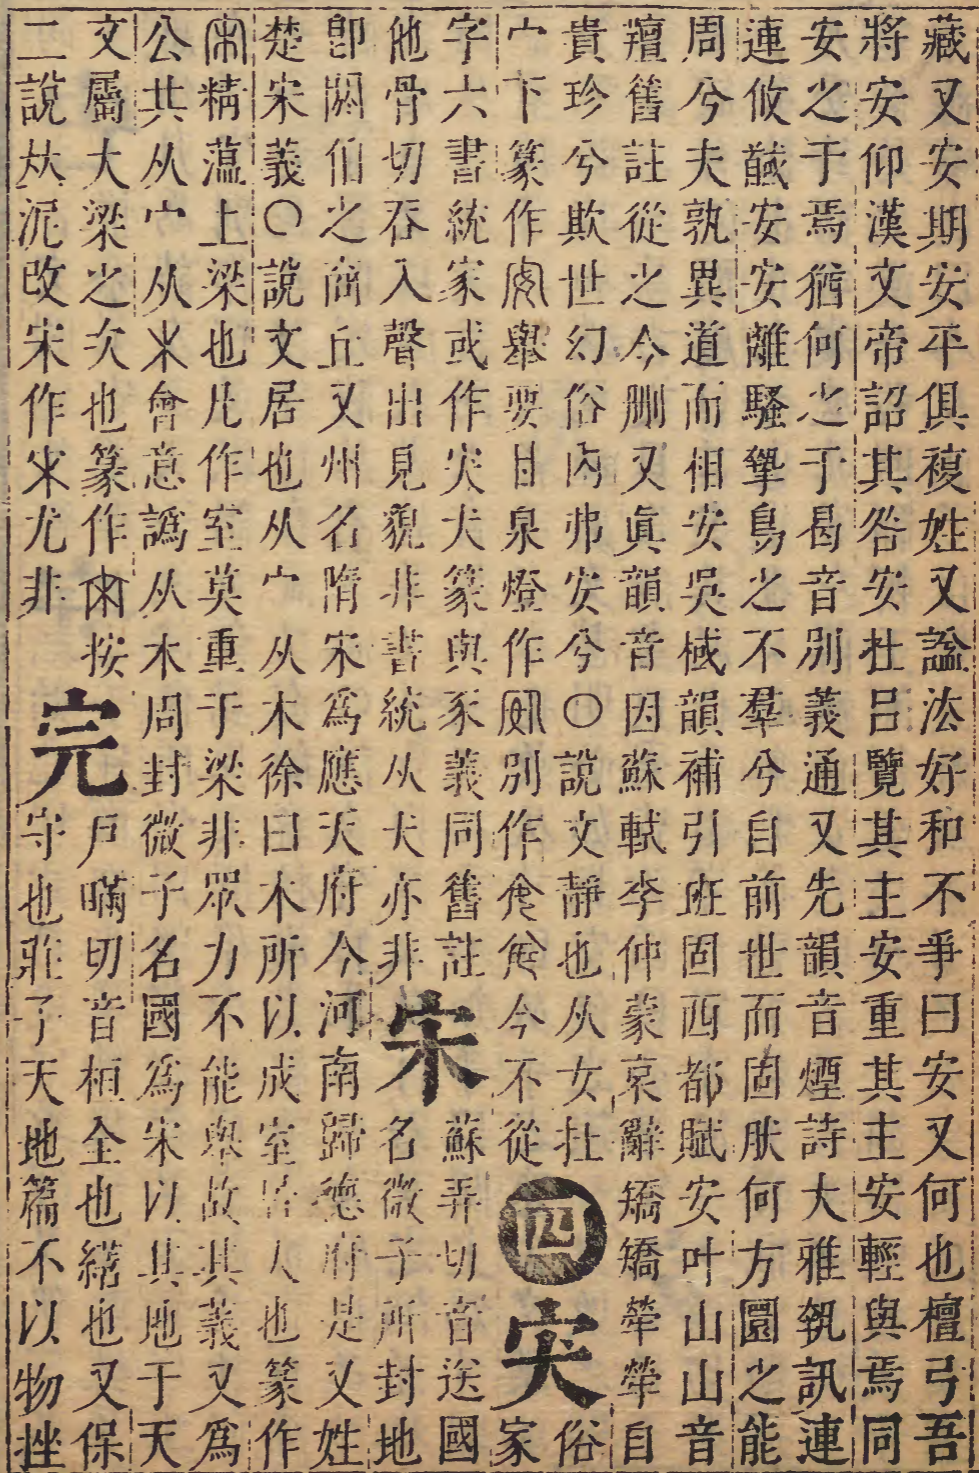 藏又安期安平俱複姓又諡法好和不爭曰安又何也檀弓吾
將安仰漢文帝詔其咎安在呂覽其主安重其主安輕與焉同
安之于焉猶何之于曷音別義通又先韻音煙詩大雅執訊連
連攸馘安安離騷鷙鳥之不羣兮自前世而固肰何方圜之能
周兮夫孰異道而相安吳棫韻補引班固西都賦安叶山山音
羶舊註從之今刪又眞韻音因蘇軾李仲蒙哀辭矯矯犖犖自
貴珍兮欺世幻俗內弗安兮〇說文靜也从女在
宀下篆作 舉要甘泉燈作 別作 今不從
四
宊
俗
家
字六書統家或作宊犬篆與豕義同舊註
他骨切呑入聲出見貌非書統从犬亦非
宋
蘇弄切音送國
名微子所封地
卽閼伯之商丘又州名隋宋爲應天府今河南歸德府是又姓
楚宋義〇說文居也从宀从木徐曰木所以成室居人也篆作
精薀上梁也凡作室莫重于梁非眾力不能舉故其義又爲
公共从宀从木會意譌从木周封微子名國爲宋以其地于天
文屬大梁之次也篆作 按
二說 泥改宋作 尤非
完
戶瞞切音桓全也繕也又保
守也莊子天地篇不以物挫